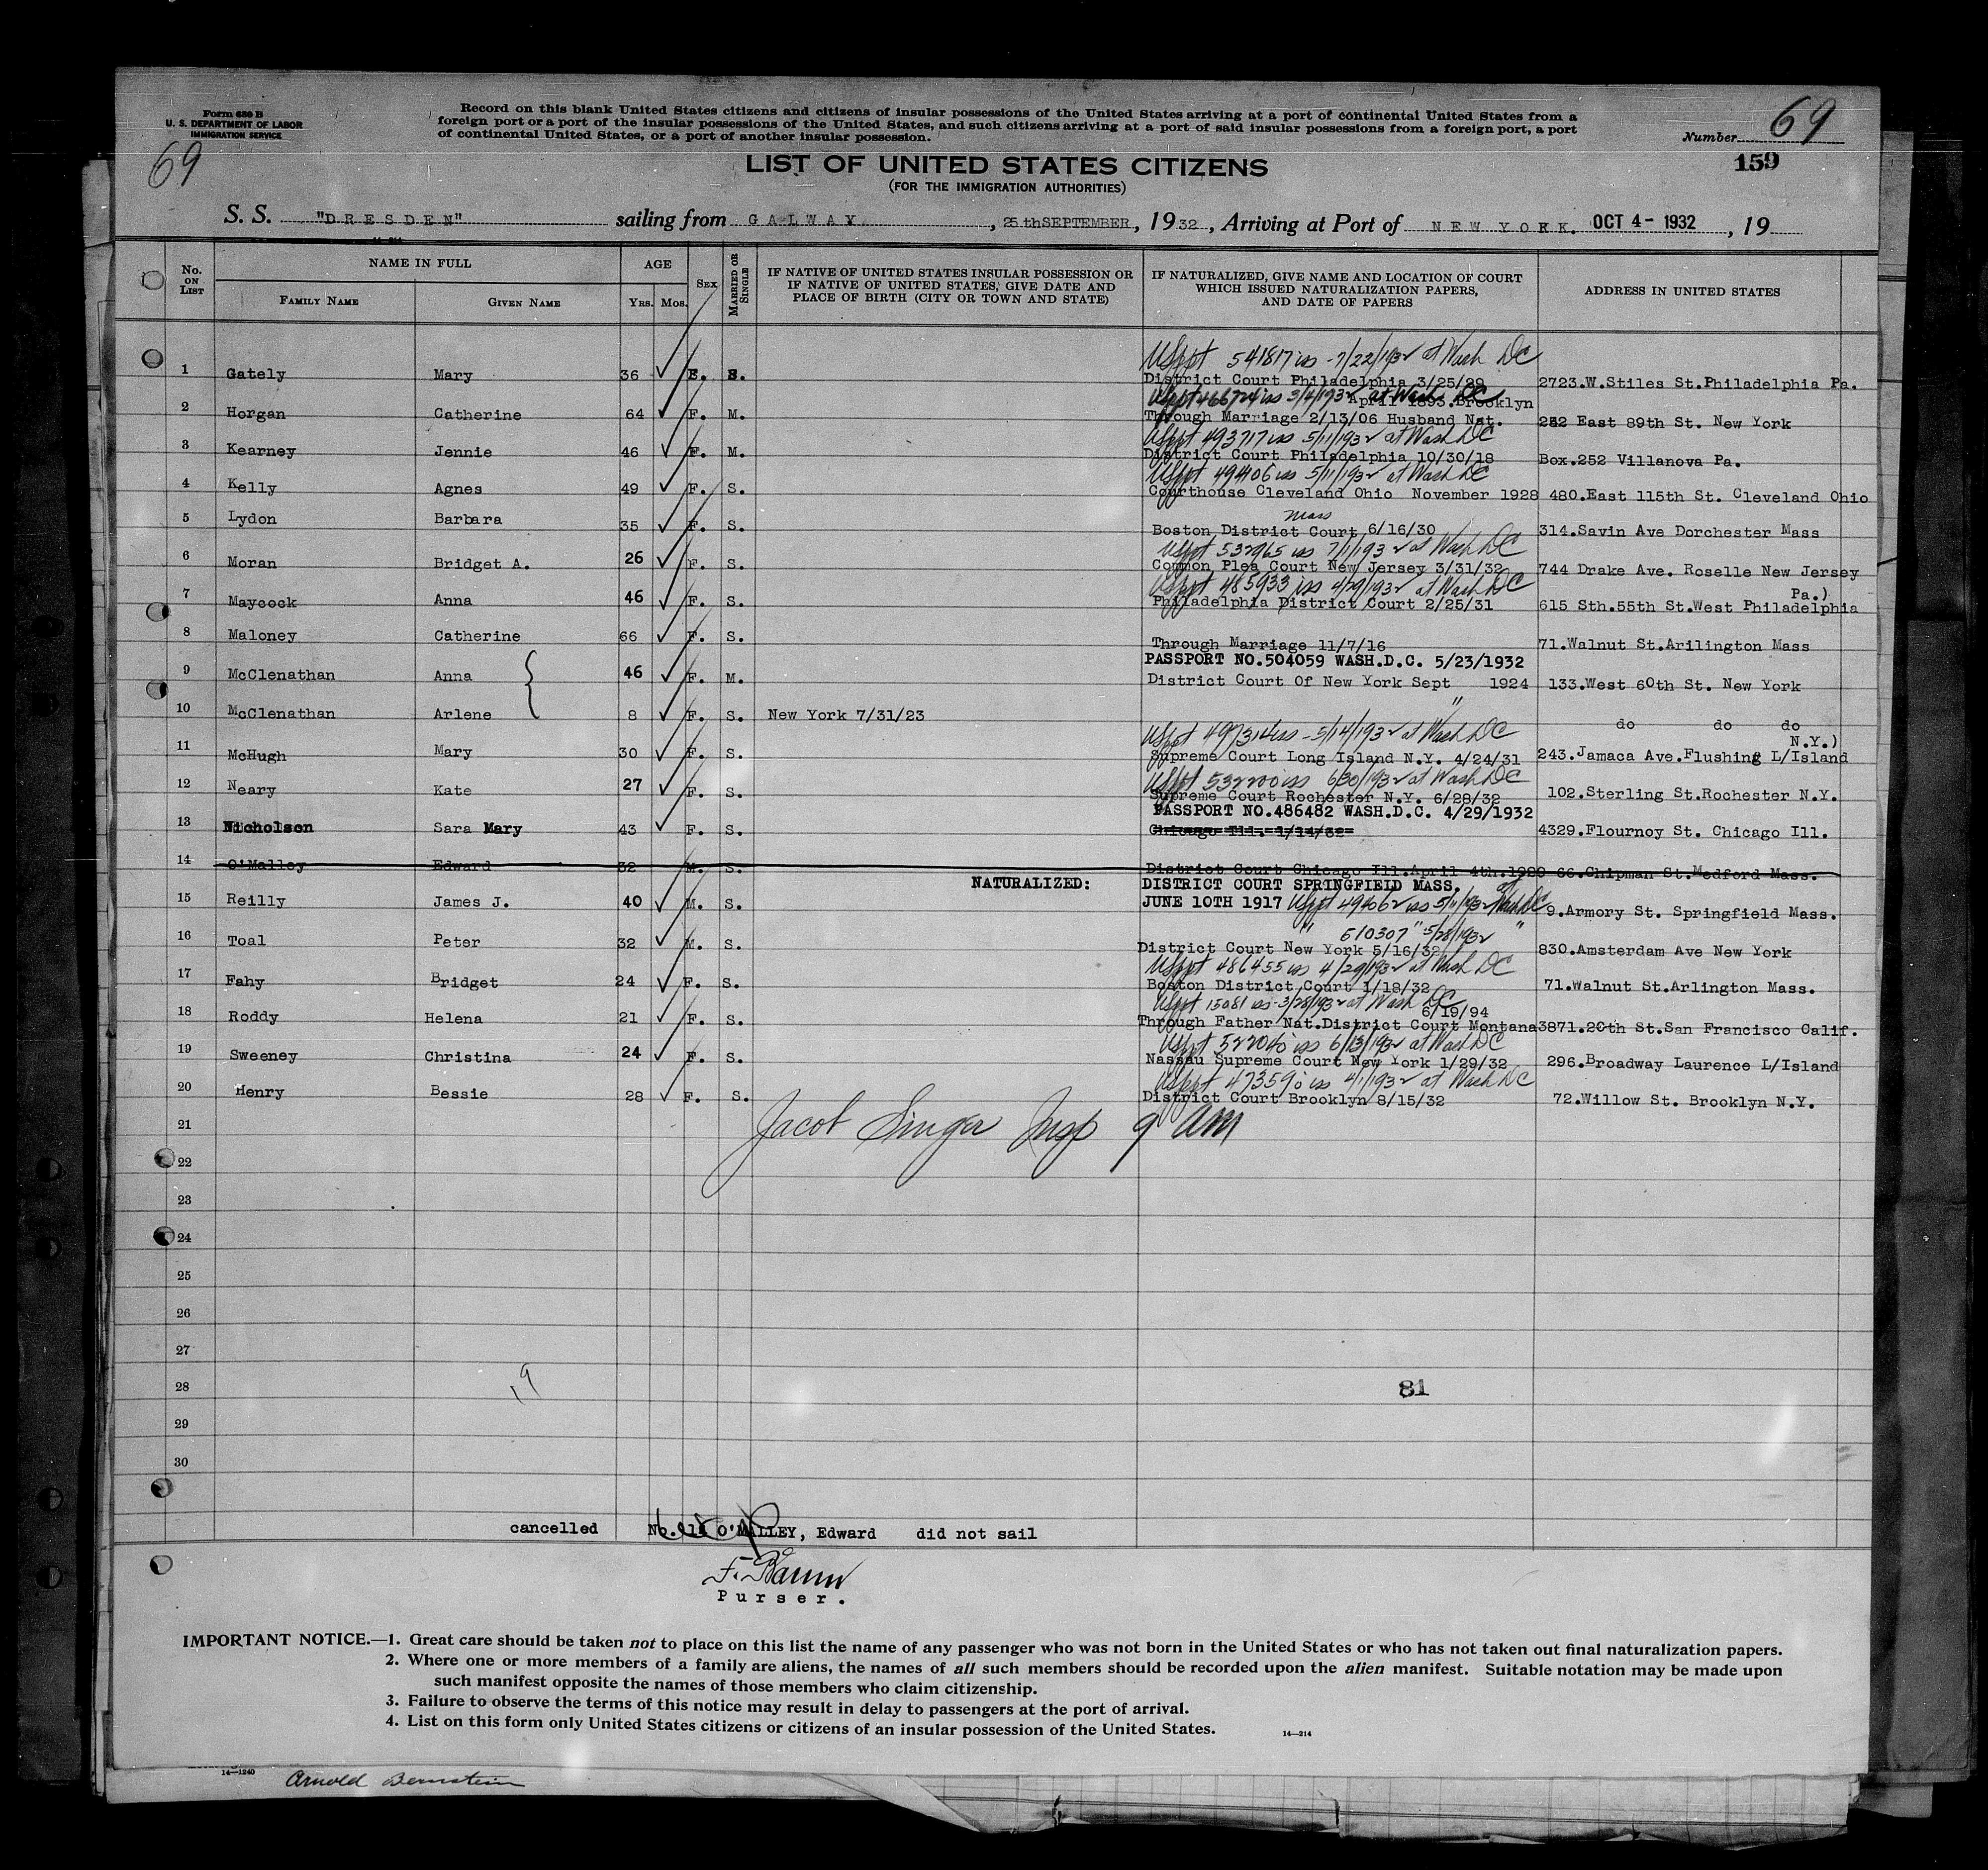 Form 630 B
U. S. DEPARTMENT OF LABOR
IMMIGRATION SERVICE
69
Record on this blank United States citizens and citizens of insular possessions of the United States arriving at a port of continental United States from a
foreign port or a port of the insular possessions of the United States, and such citizens arriving at a port of said insular possessions from a foreign port, a port
of continental United States, or a port of another insular possession.
Number 69
159
LIST OF UNITED STATES CITIZENS
(FOR THE IMMIGRATION AUTHORITIES)
S. S. "DRESDEN" sailing from GALWAY, 25thSEPTEMBER, 1932, Arriving at Port of NEW YORK. OCT 4- 1932, 19
No. ON LIST
NAME IN FULL
FAMILY NAME GIVEN NAME
AGE
Yrs. Mos.
SEX
MARRIED OR SINGLE
IF NATIVE OF UNITED STATES INSULAR POSSESSION OR
IF NATIVE OF UNITED STATES, GIVE DATE AND
PLACE OF BIRTH (CITY OR TOWN AND STATE)
IF NATURALIZED, GIVE NAME AND LOCATION OF COURT
WHICH ISSUED NATURALIZATION PAPERS,
AND DATE OF PAPERS
ADDRESS IN UNITED STATES
USppt 541817 iss - 7/22/1932 at Wash DC
1 Gately Mary 36 F. S. District Court Philadelphia 3/25/29 2723.W.Stiles St.Philadelphia Pa.
USppt 466724 iss 3/4/1932 at Wash DC
April 1893.Brooklyn
2 Horgan Catherine 64 F. M. Through Marriage 2/13/06 Husband Nat. 252 East 89th St. New York
USppt 493717 iss 5/11/1932 at Wash DC
3 Kearney Jennie 46 F. M. District Court Philadelphia 10/30/18 Box.252 Villanova Pa.
USppt 494106 iss 5/11/1932 at Wash DC
4 Kelly Agnes 49 F. S. Courthouse Cleveland Ohio November 1928 480.East 115th St. Cleveland Ohio
Mass
5 Lydon Barbara 35 F. S. Boston District Court 6/16/30 314.Savin Ave Dorchester Mass
USppt 532965 iss 7/1/1932 at Wash DC
6 Moran Bridget A. 26 F. S. Common Plea Court New Jersey 3/31/32 744 Drake Ave. Roselle New Jersey
USppt 485933 iss 4/29/1932 at Wash DC
Pa.)
7 Maycock Anna 46 F. S. Philadelphia District Court 2/25/31 615 Sth.55th St.West Philadelphia
8 Maloney Catherine 66 F. S. Through Marriage 11/7/16 71.Walnut St.Arilington Mass
PASSPORT NO.504059 WASH.D.C. 5/23/1932
9 McClenathan Anna 46 F. M. District Court Of New York Sept 1924 133.West 60th St. New York
10 McClenathan Arlene 8 F. S. New York 7/31/23 " do do do
USppt 497314 iss - 5/14/1932 at Wash DC
N.Y.)
11 McHugh Mary 30 F. S. Supreme Court Long Island N.Y. 4/24/31 243.Jamaca Ave.Flushing L/Island
USppt 532200 iss 6/30/1932 at Wash DC
12 Neary Kate 27 F. S. Supreme Court Rochester N.Y. 6/28/32 102.Sterling St.Rochester N.Y.
PASSPORT NO.486482 WASH.D.C. 4/29/1932
13 Nicholson Sara Mary 43 F. S. Chicago Ill. 1/14/32 4329.Flournoy St. Chicago Ill.
14 O'Malley Edward 32 M. S. District Court Chicago Ill.April 4th.1929 66.Chipman St.Medford Mass.
NATURALIZED: DISTRICT COURT SPRINGFIELD MASS.
15 Reilly James J. 40 M. S. JUNE 10TH 1917 USppt 494062 iss 5/11/1932 at Wash DC 9.Armory St. Springfield Mass.
" 510307 " 5/28/1932 "
16 Toal Peter 32 M. S. District Court New York 5/16/32 830.Amsterdam Ave New York
USppt 486455 iss 4/29/1932 at Wash DC
17 Fahy Bridget 24 F. S. Boston District Court 1/18/32 71.Walnut St.Arlington Mass.
USppt 15081 iss - 3/28/1932 at Wash DC
6/19/94
18 Roddy Helena 21 F. S. Through Father Nat.District Court Montana 3871.20th St.San Francisco Calif.
USppt 522040 iss 6/13/1932 at Wash DC
19 Sweeney Christina 24 F. S. Nassau Supreme Court New York 1/29/32 296.Broadway Laurence L/Island
USppt 473590 iss 4/1/1932 at Wash DC
20 Henry Bessie 28 F. S. District Court Brooklyn 8/15/32 72.Willow St. Brooklyn N.Y.
21 Jacob Singer Insp 9 AM
22
23
24
25
26
27
28 19 81
29
30
cancelled No. 14 O'MALLEY, Edward did not sail
F. Baum
Purser.
IMPORTANT NOTICE.—1. Great care should be taken not to place on this list the name of any passenger who was not born in the United States or who has not taken out final naturalization papers.
2. Where one or more members of a family are aliens, the names of all such members should be recorded upon the alien manifest. Suitable notation may be made upon
such manifest opposite the names of those members who claim citizenship.
3. Failure to observe the terms of this notice may result in delay to passengers at the port of arrival.
4. List on this form only United States citizens or citizens of an insular possession of the United States.
14—214
14—1240
Arnold Bernstein